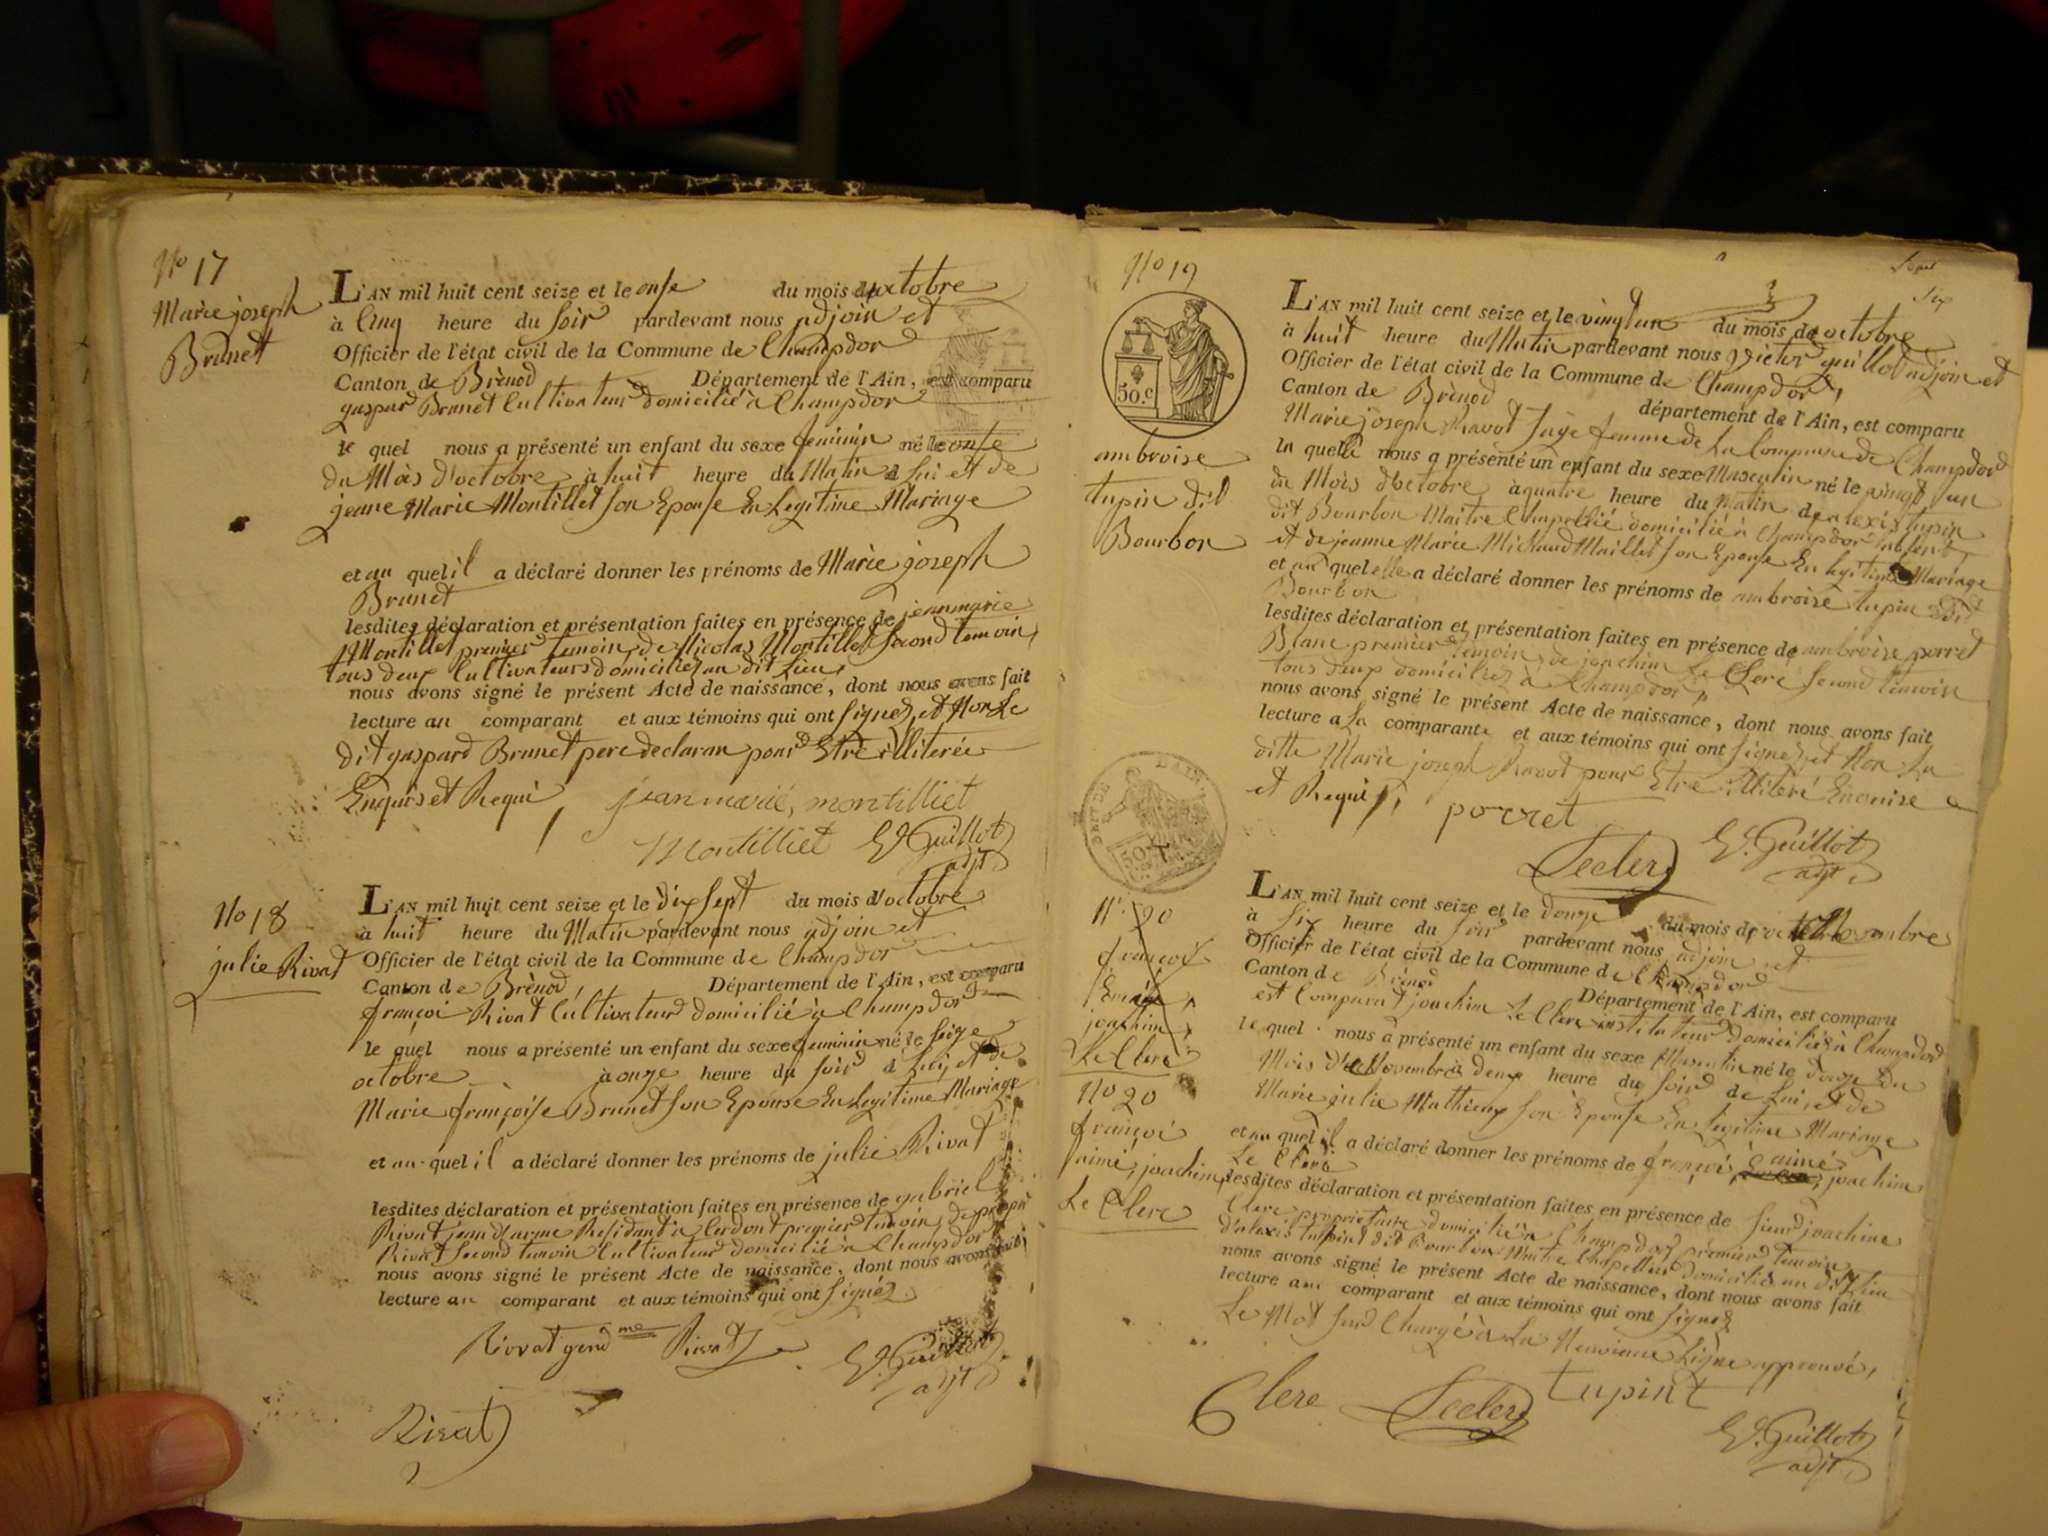 No 17
Marie joseph
Brunet
L'AN mil huit cent seize et le onse du mois d'octobre
à Cinq heure du Soir pardevant nous adjoin et
Officier de l'état civil de la Commune de Champdor
Canton de Brènod Département de l'Ain, est comparu
gaspard Brunet Cultivateur domicilié à Champdor
le quel nous a présenté un enfant du sexe feminin né le onse
du Mois d'octobre à huit heure du Matin de Lui et de
jeane Marie Montillet son Epouse En Legitime Mariage
et au quel il a déclaré donner les prénoms de Marie joseph
Brunet
lesdites déclaration et présentation faites en présence de jeanmarie
Montillet premier temoin, de Nicolas Montillet Second temoin,
tous deux Cultivateurs domiciliés au dit Lieu
nous avons signé le présent Acte de naissance, dont nous avons fait
lecture au comparant et aux témoins qui ont Signés, et Non Le
dit gaspard Brunet pere declaran pour Etre illiterée
Enquis et Requi
jeanmarie, montilliet
Montilliet G V. Guillot
adjt
No 18
julie Rivat
L'AN mil huit cent seize et le dix sept du mois d'octobre
à huit heure du Matin pardevant nous adjoin et
Officier de l'état civil de la Commune de Champdor
Canton de Brènod, Département de l'Ain, est comparu
françoi Rivat Cultivateur domicilié à Champdor
le quel nous a présenté un enfant du sexe feminin né le Seize
octobre à onze heure du Soir de Luy et de
Marie françoise Brunet son Epouse En Legitime Mariage
et au quel il a déclaré donner les prénoms de julie Rivat
lesdites déclaration et présentation faites en présence de gabriel
Rivat jean d'arme Residant à Cerdon premier temoin, de
Rivat Second temoin Cultivateur domicilié à Champdor
nous avons signé le présent Acte de naissance, dont nous avons fait
lecture au comparant et aux témoins qui ont Signés
Rivat gend me Rivat
G V. Guillot
adjt
Rivat
No 19
50.c
ambroise
tupin dit
Bourbon
Six
L'AN mil huit cent seize et le vingt un du mois de octobre
à huit heure du Matin pardevant nous Victor guillot adjoin et
Officier de l'état civil de la Commune de Champdor,
Canton de Brènod département de l'Ain, est comparu
Marie joseph Ravot Sage femme de La Commune de Champdor
la quelle nous a présenté un enfant du sexe Masculin né le vingt un
du Mois d'octobre à quatre heure du Matin de alexis tupin
dit Bourbon Maitre Chapellié domicilié à Champdor absent,
et de jeanne Marie Michaud Maillet son Epouse En legitime Mariage
et au quel elle a déclaré donner les prénoms de ambroise tupin dit
Bourbon
lesdites déclaration et présentation faites en présence de ambroise porret
Blanc premier temoin, de joachim Le Clerc Second temoin
tous deux domiciliés à Champdor
nous avons signé le présent Acte de naissance, dont nous avons fait
lecture a La comparante et aux témoins qui ont Signés, et Non La
ditte Marie joseph Ravot pour Etre illiteré Enquise
et Requi
porret
Leclerc G V. Guillot
adjt
DEPT DE L'AIN
50
No 20
françoi
joachim
Le Clerc
No 20
françoi
aimé, joachim,
Le Clerc
L'AN mil huit cent seize et le douze du mois de Novembre
à Six heure du Soir pardevant nous adjoin et
Officier de l'état civil de la Commune de Champdor
Canton de Brènod Département de l'Ain, est comparu
est Comparut joachim Le Clerc instituteur domicilié à Champdor
le quel nous a présenté un enfant du sexe Masculin né le douze du
Mois de Novembre à deux heure du Soir de Lui, et de
Marie julie Mathieux son Epouse En Legitime Mariage
et au quel il a déclaré donner les prénoms de françoi, aimé, joachim
Le Clerc
lesdites déclaration et présentation faites en présence de Sieur joachim
Clerc proprietaire domicilié à Champdor premier temoin
d'alexis tupin dit Bourbon Maitre Chapellier domicilié au dit Lieu
nous avons signé le présent Acte de naissance, dont nous avons fait
lecture au comparant et aux témoins qui ont Signés
Le Mot Surd Chargé à La Neuvieme Ligne approuvé,
Clerc Leclerc tupint
G V. Guillot
adjt